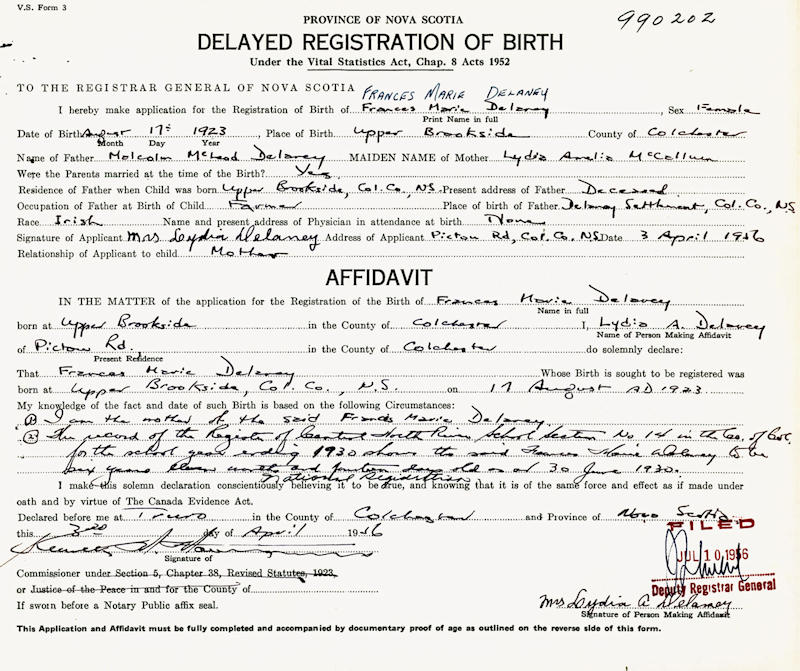 V.S. Form 3
990202
PROVINCE OF NOVA SCOTIA
DELAYED REGISTRATION OF BIRTH
Under the Vital Statistics Act, Chap. 8 Acts 1952
TO THE REGISTRAR GENERAL OF NOVA SCOTIA FRANCES MARIE DELANEY
I hereby make application for the Registration of Birth of Frances Marie Delaney, Sex Female
Print Name in full
Date of Birth August 17th 1923, Place of Birth Upper Brookside County of Colchester
Month Day Year
Name of Father Malcolm McLeod Delaney MAIDEN NAME of Mother Lydia Amelia McCallum
Were the Parents married at the time of the Birth? Yes
Residence of Father when Child was born Upper Brookside, Col. Co., NS. Present address of Father Deceased
Occupation of Father at Birth of Child Farmer Place of birth of Father Delaney Settlement, Col. Co., N.S.
Race Irish Name and present address of Physician in attendance at birth None
Signature of Applicant Mrs Lydia Delaney Address of Applicant Pictou Rd, Col. Co. N.S. Date 3 April 1956
Relationship of Applicant to child Mother
AFFIDAVIT
IN THE MATTER of the application for the Registration of the Birth of Frances Marie Delaney
Name in full
born at Upper Brookside in the County of Colchester I, Lydia A. Delaney
Name of Person Making Affidavit
of Pictou Rd. in the County of Colchester do solemnly declare:
Present Residence
That Frances Marie Delaney Whose Birth is sought to be registered was
born at Upper Brookside, Col. Co., N.S. on 17 August AD 1923
My knowledge of the fact and date of such Birth is based on the following Circumstances:
(1) I am the mother of the said Frances Marie Delaney
(2) The record of the Register of Central North River School Section No 14 in the Co. of Col.
for the school year ending 1930 shows the said Frances Marie Delaney to be
six years eleven months and fourteen days old as at 30 June 1930.
National Registration
I make this solemn declaration conscientiously believing it to be true, and knowing that it is of the same force and effect as if made under
oath and by virtue of The Canada Evidence Act.
Declared before me at Truro in the County of Colchester and Province of Nova Scotia
this 3rd day of April 1956
FILED
JUL 10 1956
Signature of
Deputy Registrar General
Commissioner under Section 5, Chapter 38, Revised Statutes, 1923,
or Justice of the Peace in and for the County of
If sworn before a Notary Public affix seal.
Mrs Lydia A Delaney
Signature of Person Making Affidavit
This Application and Affidavit must be fully completed and accompanied by documentary proof of age as outlined on the reverse side of this form.